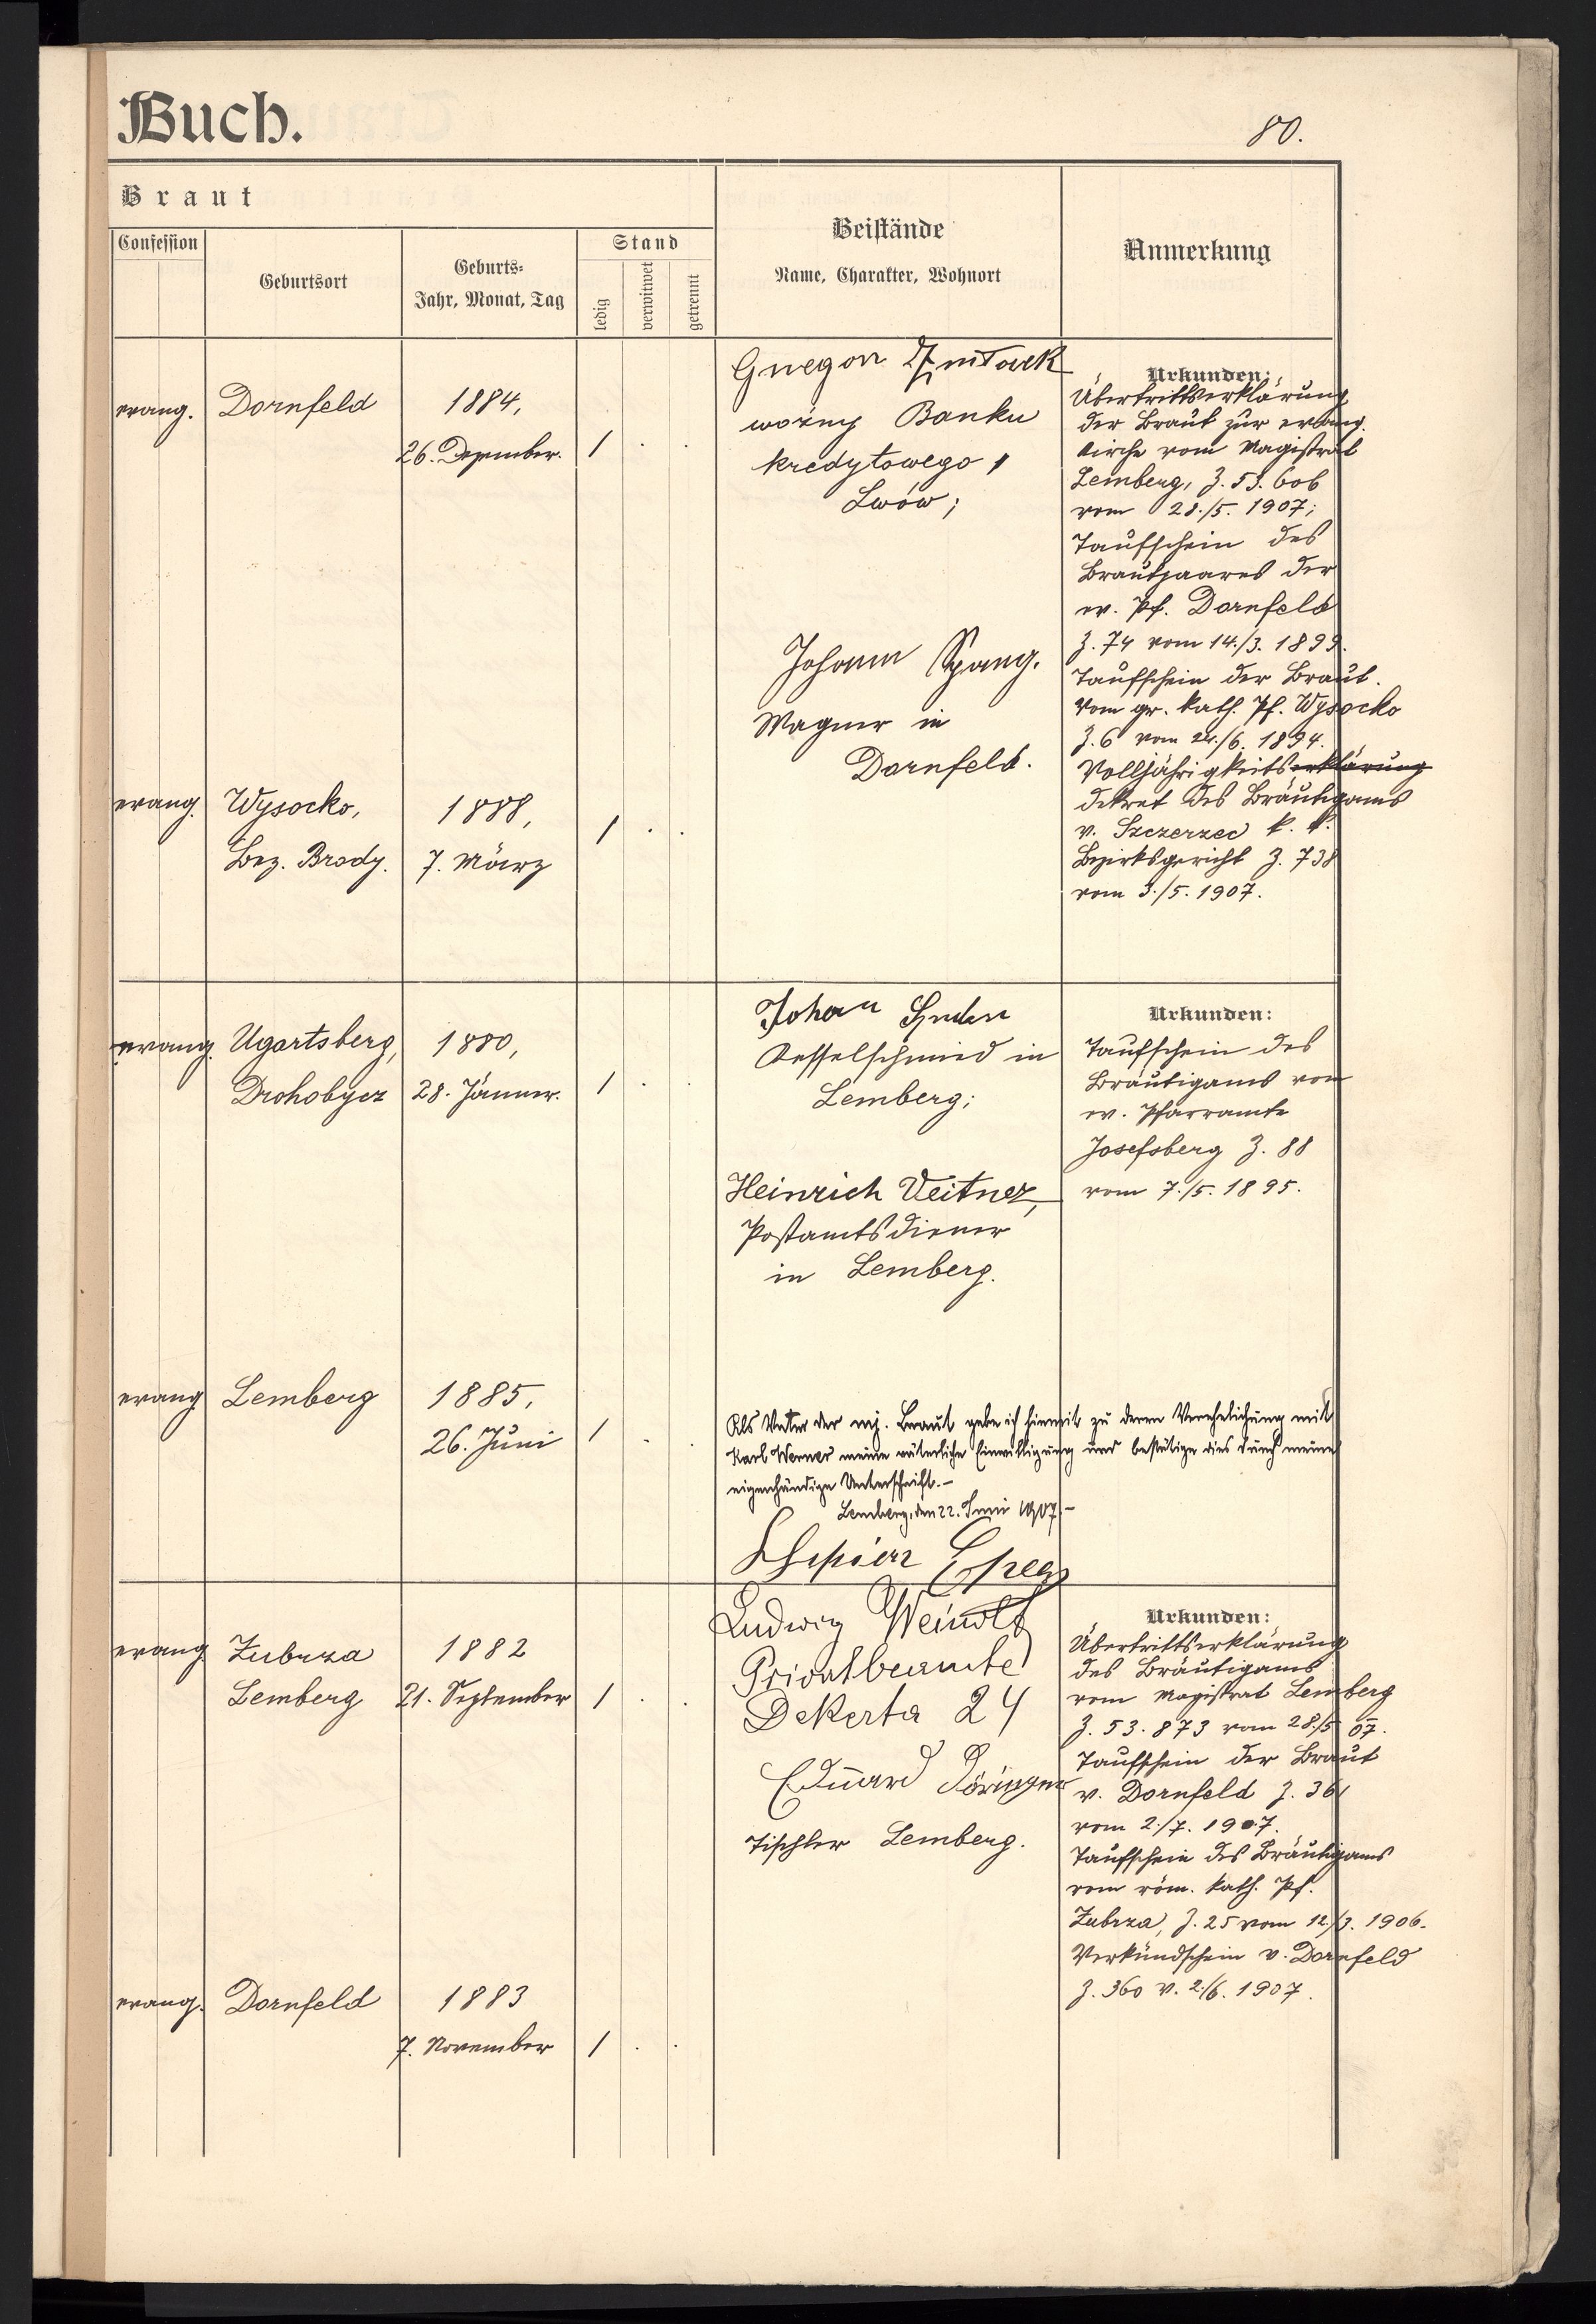 Buch.
80.
Braut
Confession
Geburtsort
Geburts-
Jahr, Monat, Tag
Stand
ledig
verwitwet
getrennt
Beistände
Name, Charakter, Wohnort
Anmerkung
evang.
Dornfeld
1884,
26. Dezember.
1 . .
Gregor
woźny Banku
kredytowego,
Lwów;
Johann Spang.
Wagner in
Dornfeld.
Urkunden:
Übertrittserklärung
der Braut zur evang.
Kirche vom Magistrat
Lemberg, Z. 53.606
vom 28./5. 1907;
Taufschein des
Brautpaares der
ev. Pf. Dornfeld
Z. 74 vom 14./3. 1899.
Taufschein der Braut.
vom gr. kath. Pf. Wysocko
Z. 6 vom 24./6. 1894.
Volljährigkeitserklärung
dekret des Bräutigams
v. Szczerzec k. k.
Bezirksgericht Z. 738
vom 3./5. 1907.
evang.
Wysocko,
Bez. Brody.
1888,
7. März
1 . .
evang.
Ugartsberg,
Drohobycz
1880,
28. Jänner.
1 . .
Johan
Kesselschmied in
Lemberg;
Heinrich Veitner,
Postamtsdiener
in Lemberg.
Urkunden:
Taufschein des
Bräutigams vom
ev. Pfarramte
Josefsberg Z. 88
vom 7./5. 1895.
evang
Lemberg
1885,
26. Juni
1 . .
Als Vater der mj. Braut gebe ich hiemit zu deren Verehelichung mit
Karl Werner meine väterliche Einwilligung und bestätige dies durch meine
eigenhändige Unterschrift.-
Lemberg, den 22. Juni 1907.-
evang
Zubrza
Lemberg
1882
21. September
1 . .
Ludwig Weinolt
Privatbeamte
Dekerta 24
Eduard Döringer
Tischler Lemberg.
Urkunden:
Übertrittserklärung
des Bräutigams
vom Magistrat Lemberg
Z. 53.873 vom 28./5 07.
Taufschein der Braut
v. Dornfeld Z. 361
vom 2./7. 1907.
Taufschein des Bräutigams
vom röm. kath. Pf.
Zubrza, Z. 25 vom 12./3. 1906.
Verkündschein v. Dornfeld
Z. 360 v. 2./6. 1907.
evang.
Dornfeld
1883
7. November
1 . .